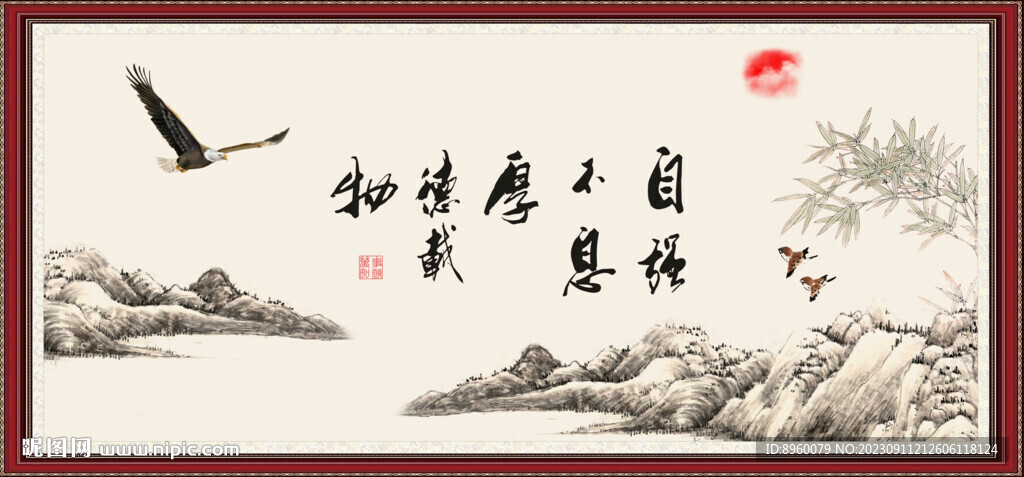 自强
不息
厚
德载
物
昵图网 www.nipic.com
ID:8960079 NO:20230911212606118124